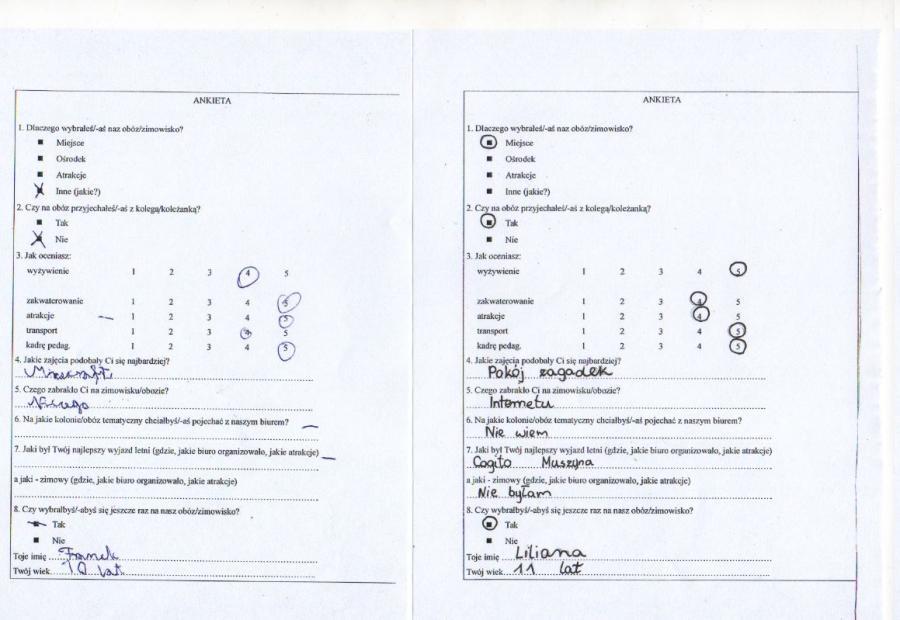 ANKIETA
1. Dlaczego wybrałeś/-aś naz obóz/zimowisko?
Miejsce
Ośrodek
Atrakcje
Inne (jakie?)
2. Czy na obóz przyjechałeś/-aś z kolegą/koleżanką?
Tak
Nie
3. Jak oceniasz:
wyżywienie 1 2 3 4 5
zakwaterowanie 1 2 3 4 5
atrakcje 1 2 3 4 5
transport 1 2 3 4 5
kadrę pedag. 1 2 3 4 5
4. Jakie zajęcia podobały Ci się najbardziej?
5. Czego zabrakło Ci na zimowisku/obozie?
Niczego
6. Na jakie kolonie/obóz tematyczny chciałbyś/-aś pojechać z naszym biurem?
7. Jaki był Twój najlepszy wyjazd letni (gdzie, jakie biuro organizowało, jakie atrakcje)
a jaki - zimowy (gdzie, jakie biuro organizowało, jakie atrakcje)
8. Czy wybrałbyś/-abyś się jeszcze raz na nasz obóz/zimowisko?
Tak
Nie
Toje imię Franek
Twój wiek 10 lat
ANKIETA
1. Dlaczego wybrałeś/-aś naz obóz/zimowisko?
Miejsce
Ośrodek
Atrakcje
Inne (jakie?)
2. Czy na obóz przyjechałeś/-aś z kolegą/koleżanką?
Tak
Nie
3. Jak oceniasz:
wyżywienie 1 2 3 4 5
zakwaterowanie 1 2 3 4 5
atrakcje 1 2 3 4 5
transport 1 2 3 4 5
kadrę pedag. 1 2 3 4 5
4. Jakie zajęcia podobały Ci się najbardziej?
Pokój zagadek
5. Czego zabrakło Ci na zimowisku/obozie?
Internetu
6. Na jakie kolonie/obóz tematyczny chciałbyś/-aś pojechać z naszym biurem?
Nie wiem
7. Jaki był Twój najlepszy wyjazd letni (gdzie, jakie biuro organizowało, jakie atrakcje)
Cogito Muszyna
a jaki - zimowy (gdzie, jakie biuro organizowało, jakie atrakcje)
Nie byłam
8. Czy wybrałbyś/-abyś się jeszcze raz na nasz obóz/zimowisko?
Tak
Nie
Toje imię Liliana
Twój wiek 11 lat